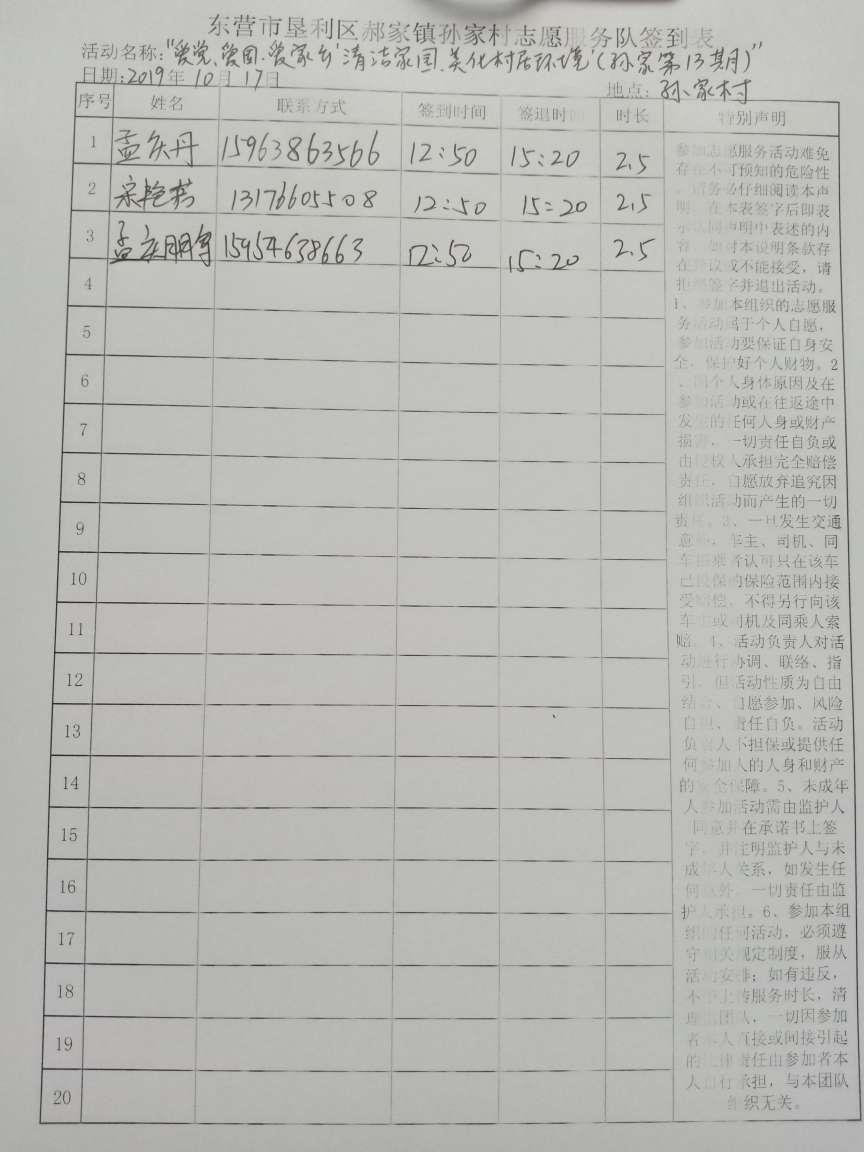 东营市垦利区郝家镇孙家村志愿服务队签到表
活动名称:"爱党、爱国、爱家乡'清洁家园、美化村居环境'(孙家第13期)"
日期:2019年10月17日
地点:孙家村
序号 姓名 联系方式 签到时间 签退时间 时长 特别声明
1 孟庆丹 15963863566 12:50 15:20 2.5
2 宋艳 13176605508 12:50 15:20 2.5
3 孟庆朋 15954638663 12:50 15:20 2.5
4
5
6
7
8
9
10
11
12
13
14
15
16
17
18
19
20
参加志愿服务活动难免
存在不可预知的危险性
,请务必仔细阅读本声
明,在本表签字后即表
示认同声明中表述的内
容,如对本说明条款存
在异议或不能接受,请
拒绝签字并退出活动。
1、参加本组织的志愿服
务活动属于个人自愿,
参加活动要保证自身安
全,保护好个人财物。2
、因个人身体原因及在
参加活动或在往返途中
发生的任何人身或财产
损害,一切责任自负或
由侵权人承担完全赔偿
责任,自愿放弃追究因
组织活动而产生的一切
责任。3、一旦发生交通
意外,车主、司机、同
车搭乘者认可只在该车
已投保的保险范围内接
受赔偿,不得另行向该
车主或司机及同乘人索
赔。4、活动负责人对活
动进行协调、联络、指
引,但活动性质为自由
结合、自愿参加、风险
自担、责任自负。活动
负责人不担保或提供任
何参加人的人身和财产
的安全保障。5、未成年
人参加活动需由监护人
同意并在承诺书上签
字,并注明监护人与未
成年人关系,如发生任
何意外,一切责任由监
护人承担。6、参加本组
织的任何活动,必须遵
守相关规定制度,服从
活动安排;如有违反,
不予上传服务时长,清
理出团队,一切因参加
者本人直接或间接引起
的法律责任由参加者本
人自行承担,与本团队
组织无关。